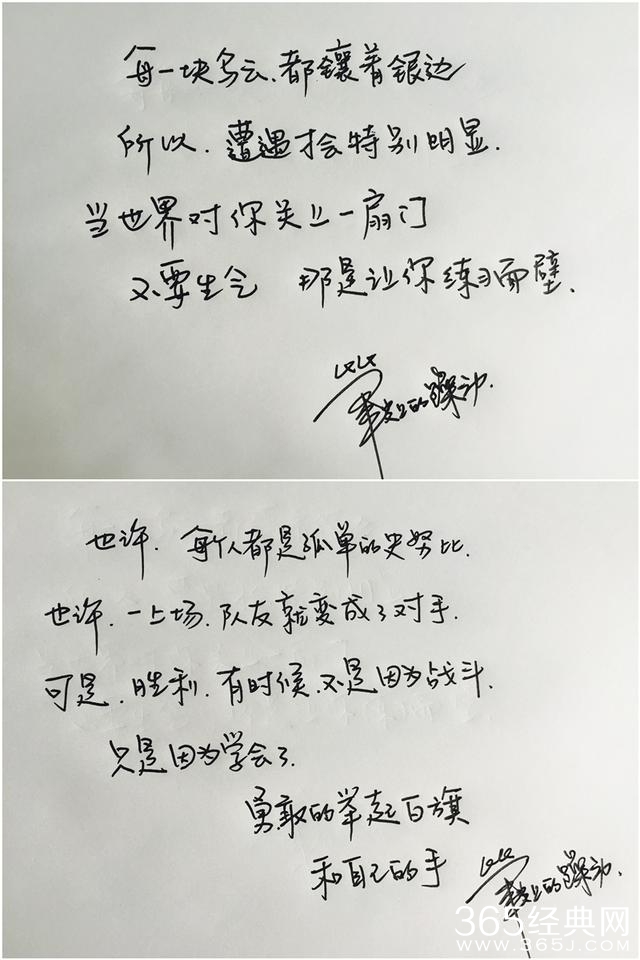 每一块乌云、都镶着银边
所以.遭遇才会特别明显.
当世界对你关上一扇门
不要生气 那是让你练习面壁.
也许.每个人都是孤单的史努比.
也许.一上场.队友就变成了对手.
可是.胜利.有时候.不是因为战斗.
只是因为学会了.
勇敢的举起白旗
和自己的手
365经典网
WWW.365J.COM